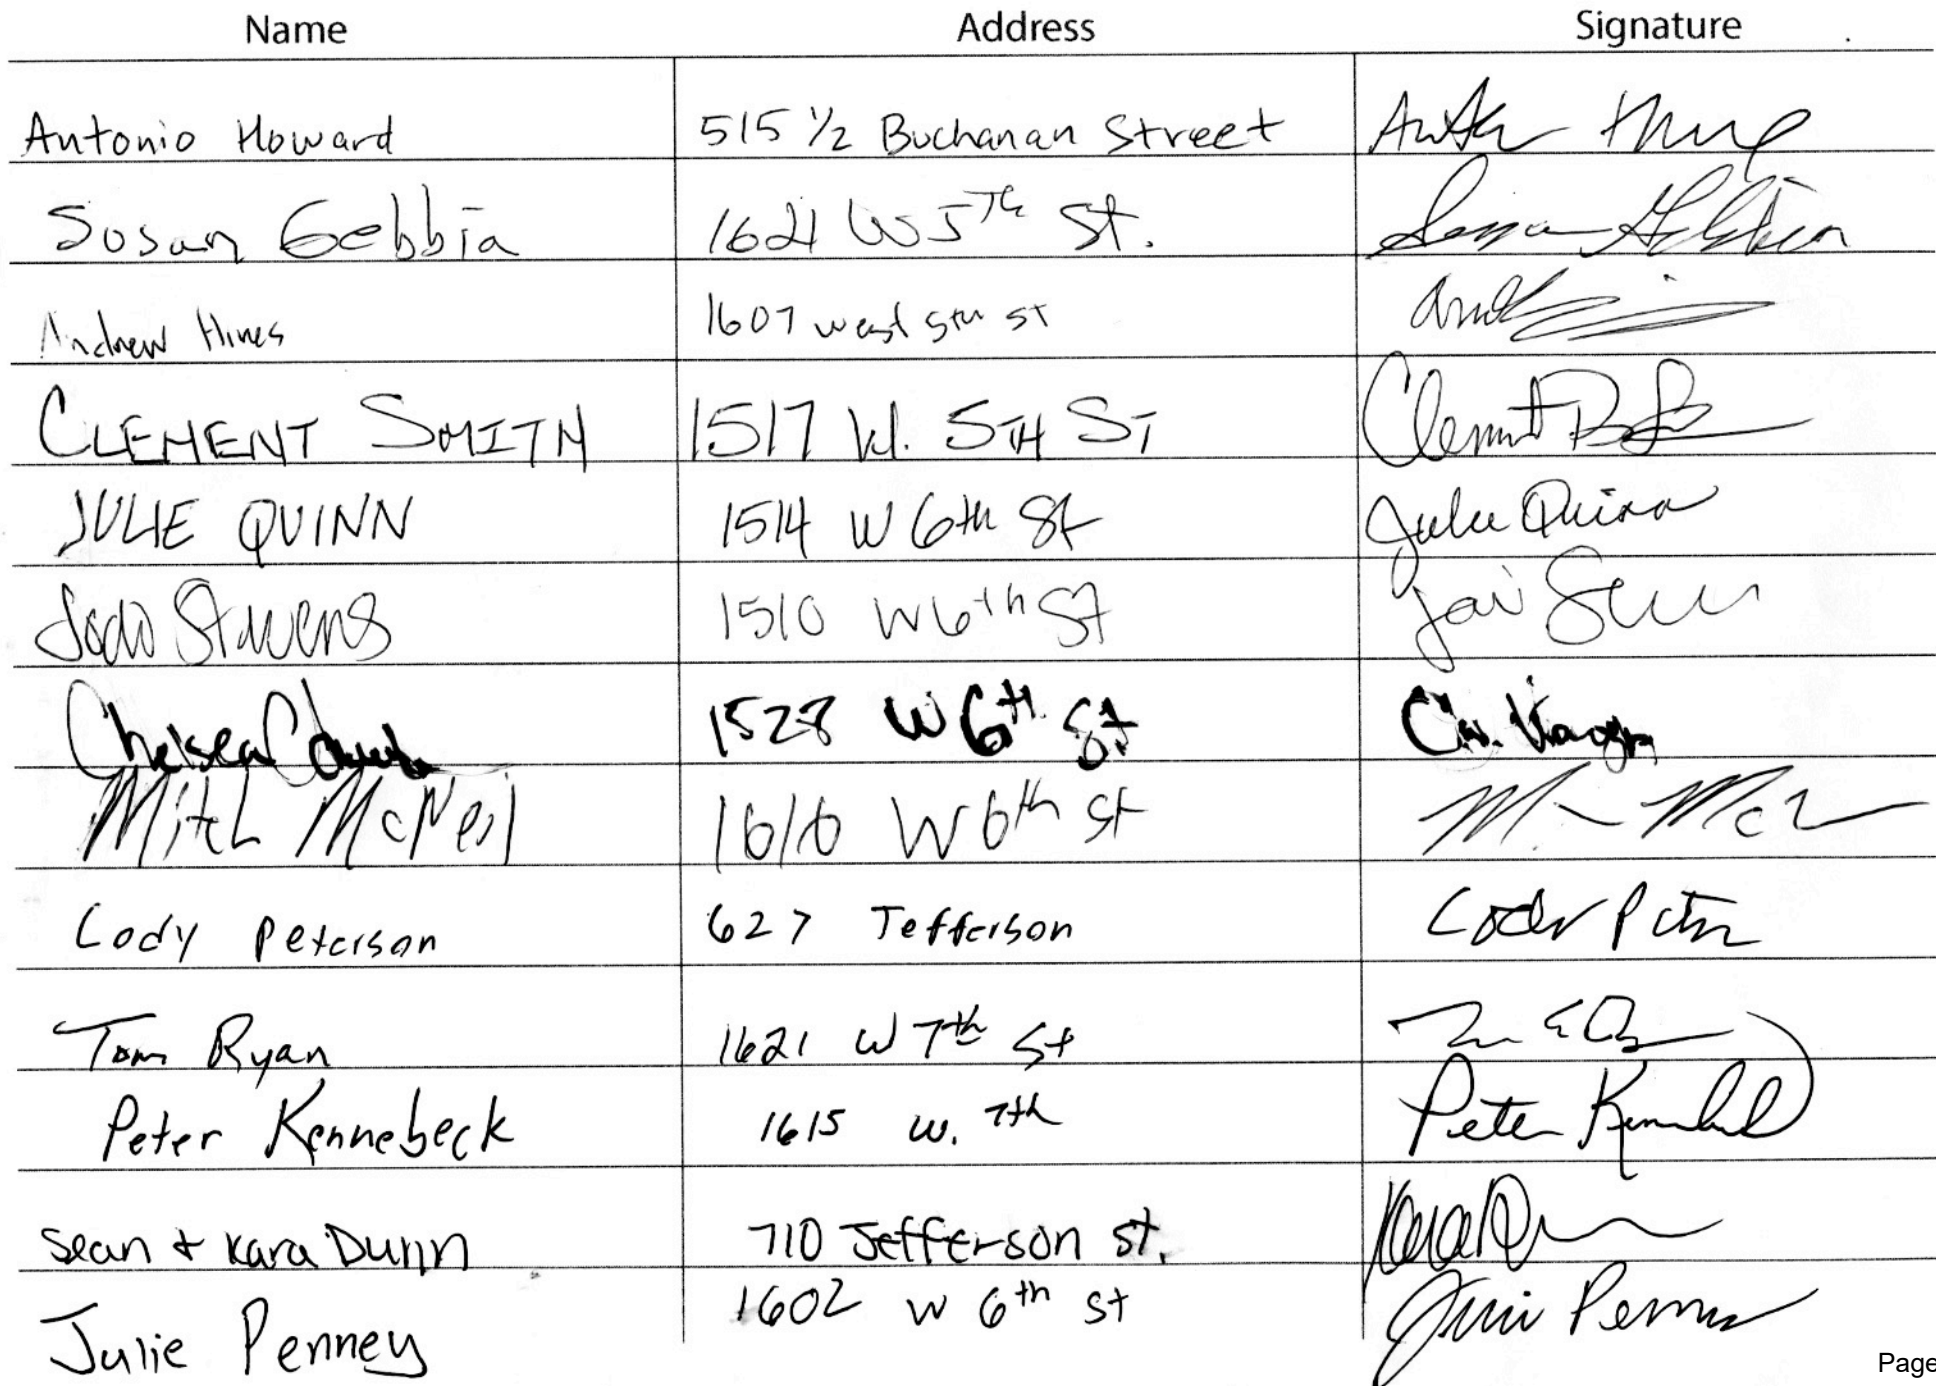 Name Address Signature
Antonio Howard 515 1/2 Buchanan Street
Susan Gebbia 1621 W 5th St.
Andrew Hines 1607 west 5th st
CLEMENT SMITH 1517 W. 5TH ST Clement
JULIE QUINN 1514 W 6th St Julie Quinn
Stevens 1510 W 6th St
Chelsea 1528 W 6th St
Mitch McNeil 1616 W 6th St
Cody Peterson 627 Jefferson Cody
Tom Ryan 1621 W 7th St
Peter Kennebeck 1615 W. 7th Peter
Sean + Kara Dunn 710 Jefferson St. Kara
Julie Penney 1602 W 6th St
Page